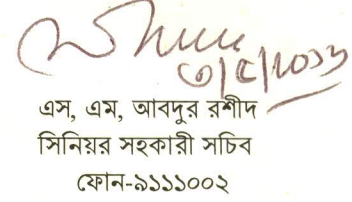 ৩/৫/২০১৩
এস, এম, আবদুর রশীদ
সিনিয়র সহকারী সচিব
ফোন-৯১১১০০২